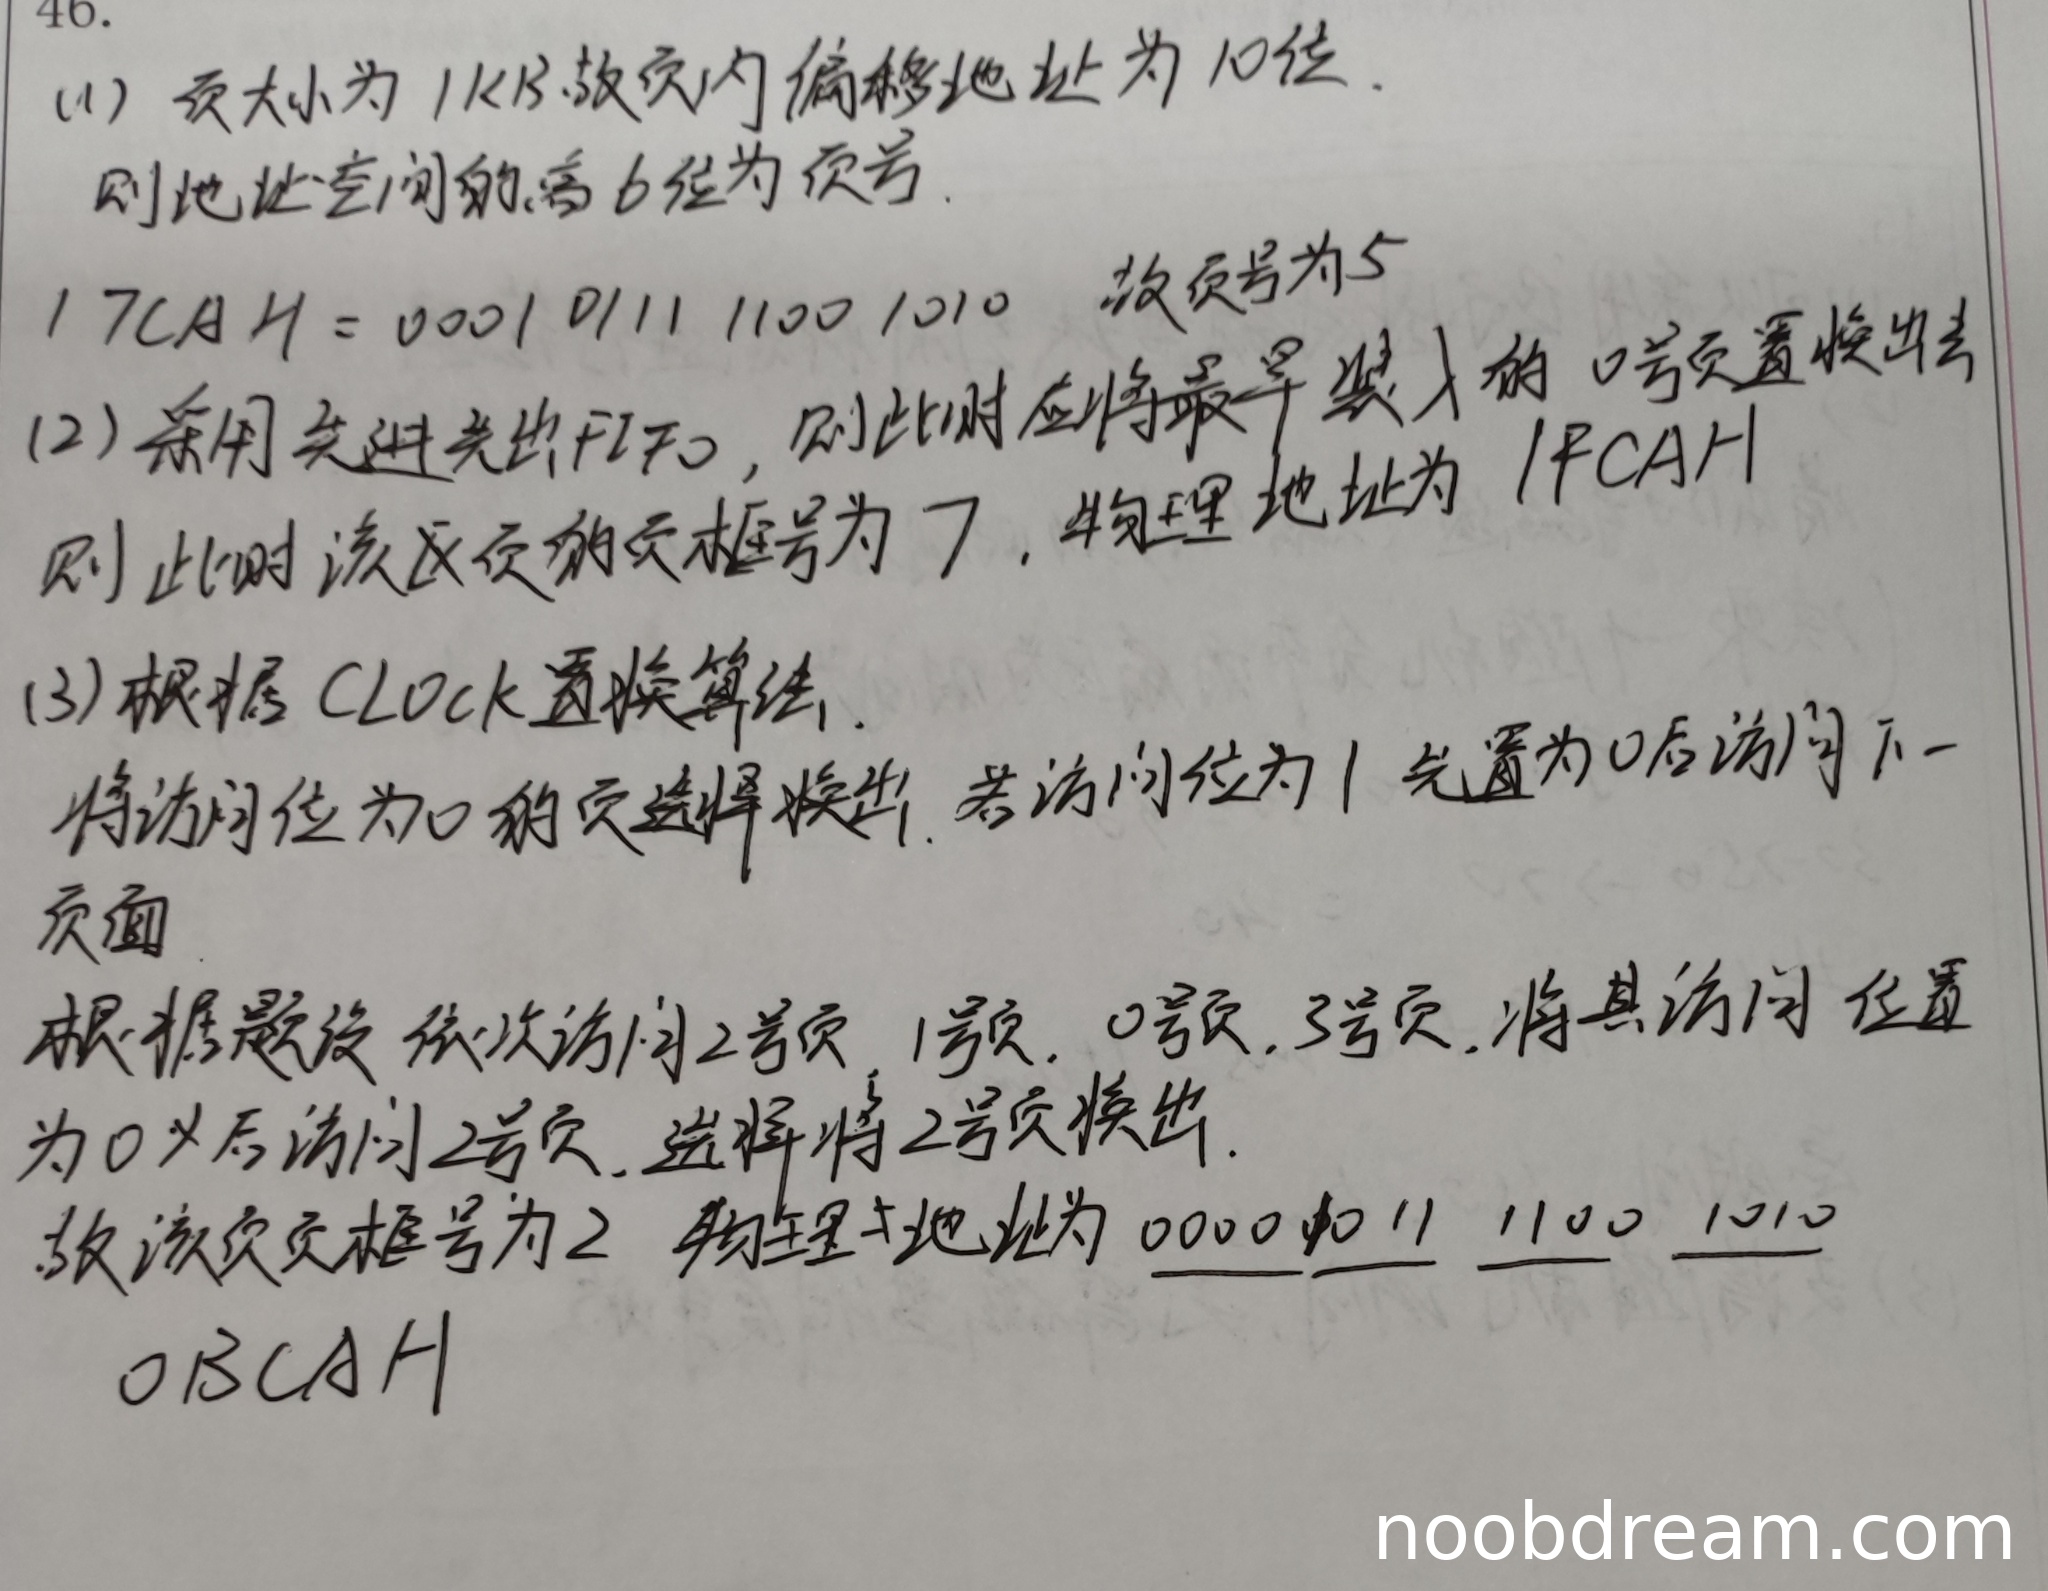 46.
(1) 页大小为 1KB.故页内偏移地址为 10位.
则地址空间的高6位为页号.
17CAH = 0001 0111 1100 1010 故页号为5
(2) 采用先进先出FIFO, 则此时应将最早装入的 0号页置换出去
则此时该页的页框号为7. 物理地址为 1FCAH
(3) 根据 CLOCK置换算法.
将访问位为0的页选择换出. 若访问位为1 先置为0后访问下一
页面.
根据题设 依次访问2号页, 1号页. 0号页. 3号页. 将其访问位置
为0 以后访问2号页. 选择将2号页换出.
故该页页框号为2 物理地址为 0000 1011 1100 1010
0BCAH
noobdream.com